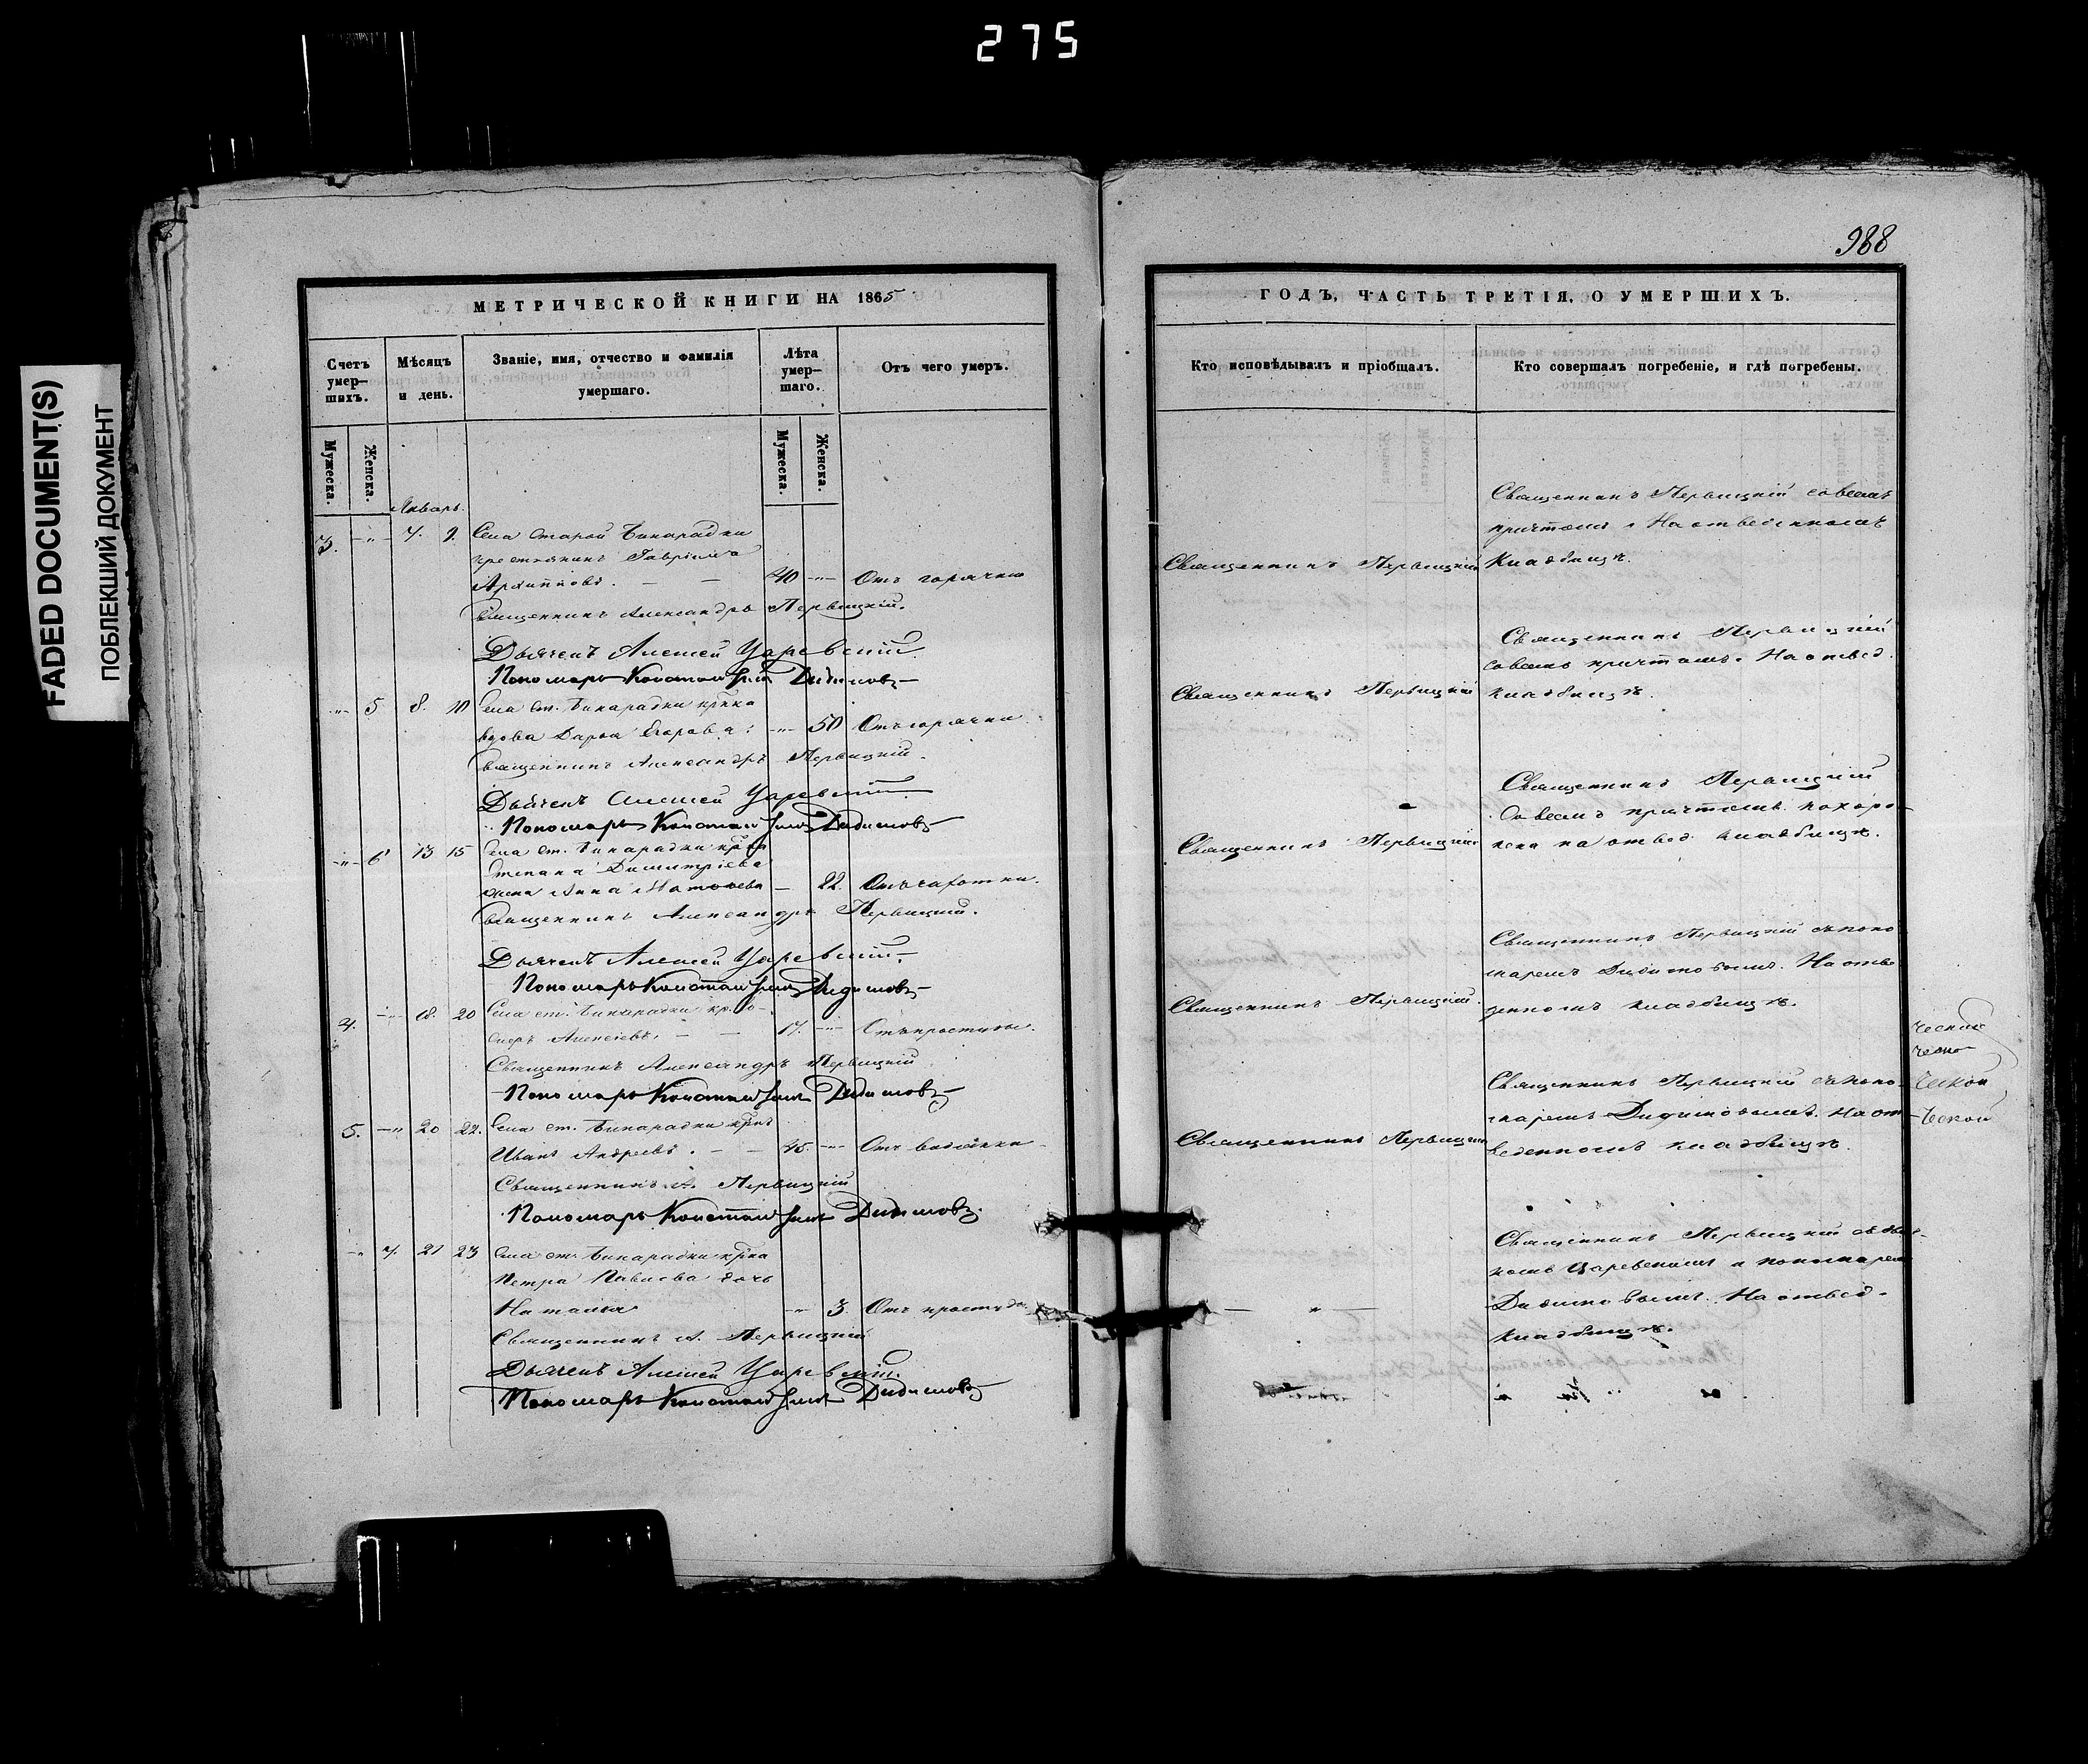 275
FADED DOCUMENT(S)
ПОБЛЕКШИЙ ДОКУМЕНТ
988
МЕТРИЧЕСКОЙ КНИГИ НА 1865
Счетъ умер-шихъ.
Мѣсяцъ и день.
Званіе, имя, отчество и фамилія умершаго.
Лѣта умер-шаго.
Отъ чего умеръ.
Мужеска.
Женска.
Мужеска.
Женска.
Январь.
3. -"- 7. 9. Села Старой Бинарадки
крестьянинъ Гавріилъ
Архиповъ. — — 40 -"- Отъ горячки
Священникъ Александръ Первицкій.
Дьячекъ Алексей Царевскій.
Пономарь Константинъ Дидимовъ
-"- 5 8. 10 Села ст. Бинарадки
вдова Дарья Егорова: -"- 50 Отъ горячки
Священникъ Александръ Первицкій.
Дьячекъ Алексей Царевскій.
Пономарь Константинъ Дидимовъ
-"- 6 13 15 Села ст. Бинарадки
Степана Димитріева
жена Анна — 22. Отъ чахотки.
Священникъ Александръ Первицкій.
Дьячекъ Алексей Царевскій.
Пономарь Константинъ Дидимовъ
4. -"- 18. 20 Села ст. Бинарадки
Алексіевъ. — — 17. -"- Отъ простуды.
Священникъ Александръ Первицкій
Пономарь Константинъ Дидимовъ
5. -"- 20 22. Села ст. Бинарадки
Иванъ Андреевъ. — — 45. -"- Отъ водянки
Священникъ А. Первицкій
Пономарь Константинъ Дидимовъ.
-"- 7. 21 23 Села ст. Бинарадки
Петра Павлова дочь
Наталья -"- 3. Отъ простуды
Священникъ А. Первицкій
Дьячекъ Алексей Царевскій.
Пономарь Константинъ Дидимовъ
ГОДЪ, ЧАСТЬ ТРЕТІЯ, О УМЕРШИХЪ.
Кто исповѣдывалъ и пріобщалъ.
Кто совершалъ погребеніе, и гдѣ погребены.
Священникъ Первицкій совсемъ
причтомъ. На отведенномъ
Священникъ Первицкій
кладбищѣ.
Священникъ Первицкій
совсемъ причтомъ. На отвед.
Священникъ Первицкій
кладбищѣ.
Священникъ Первицкій
Совсемъ причтомъ похоро-
Священникъ Первицкій
нена на отвед. кладбищѣ.
Священникъ Первицкій съ поно
маремъ Дидимовымъ. На отве
Священникъ Первицкій.
денномъ кладбищѣ.
Священникъ Первицкій съ поно-
маремъ Дидимовымъ. На от-
Священникъ Первицкій
веденномъ кладбищѣ.
Священникъ Первицкій съ дьяч-
комъ Царевскимъ и пономаремъ
Дидимовымъ. На отвед.
кладбищѣ.
ческой
ческой